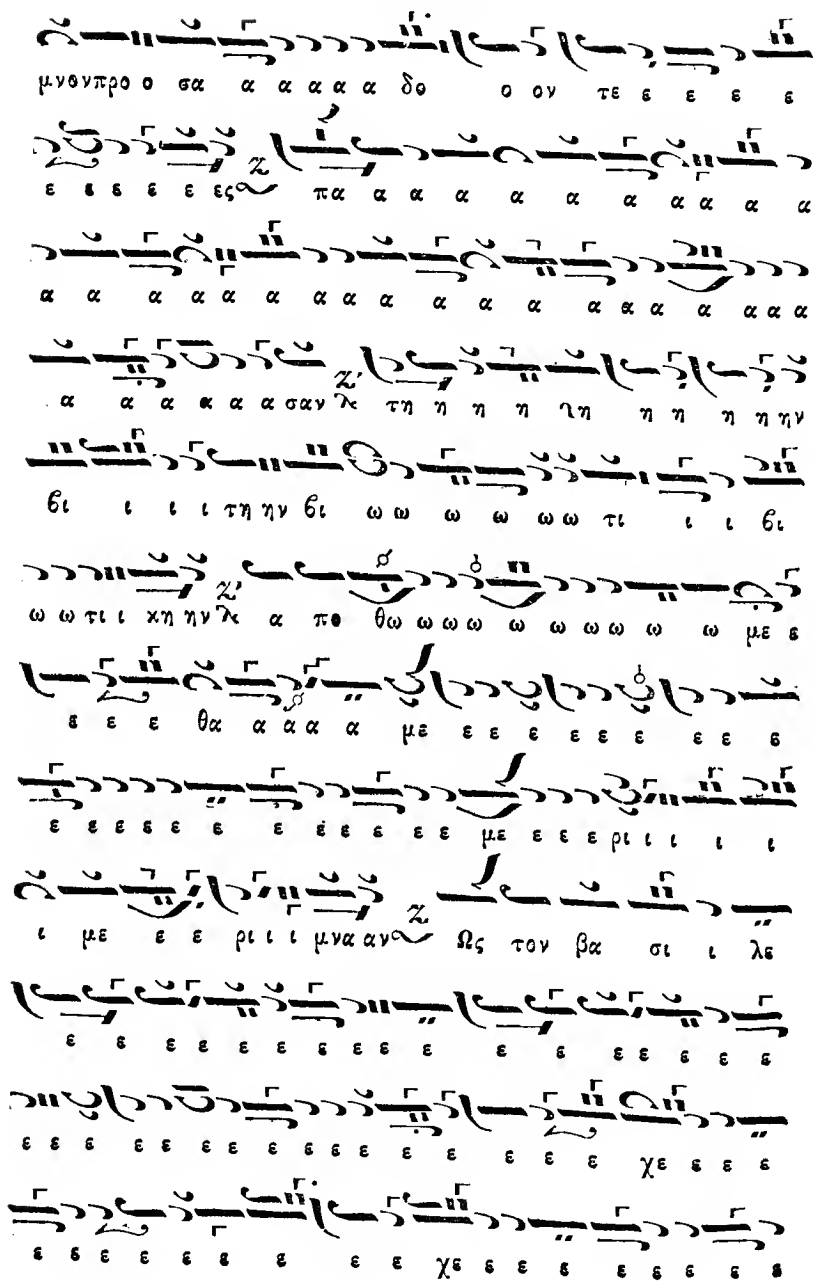 μνονπρο ο σα α α α α α δο ο ον τε ε ε ε ε
ε ε ε ε ε ες πα α α α α α α α α α α
α α α α α α α α α α α α α α α α α α α
α α α α α α σαν τη η η η τη η η η η ην
βι ι ι ι τη ην βι ω ω ω ω ω ω τι ι ι βι
ω ω τι ι κη ην α πο θω ω ω ω ω ω ω ω ω με ε
ε ε ε θα α α α α με ε ε ε ε ε ε ε ε ε
ε ε ε ε ε ε ε ε ε ε ε ε με ε ε ε ρι ι ι ι ι
ι με ε ε ρι ι ι μνα αν Ως τον βα σι ι λε
ε ε ε ε ε ε ε ε ε ε ε ε ε ε ε ε ε
ε ε ε ε ε ε ε ε ε ε ε ε ε ε ε ε χε ε ε ε
ε ε ε ε ε ε ε ε ε χε ε ε ε ε ε ε ε ε